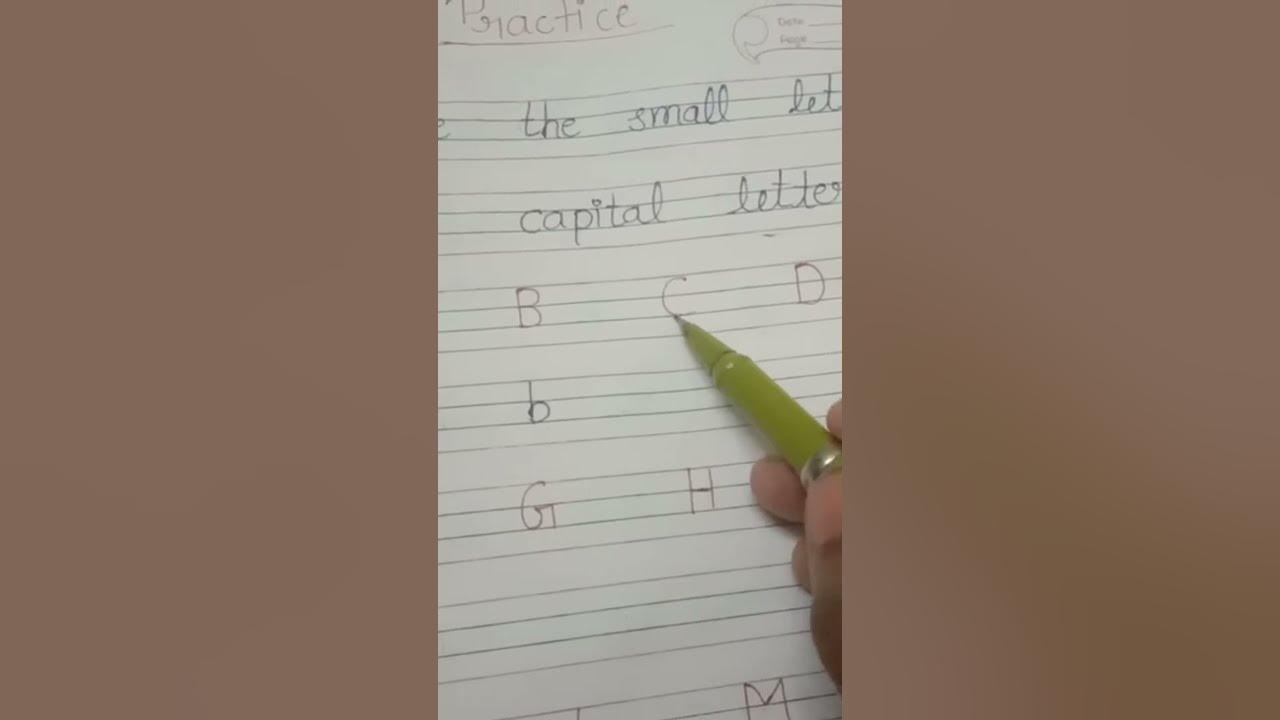 Practice
Date
Page
the small let
capital letter
B C D
b
G H
M